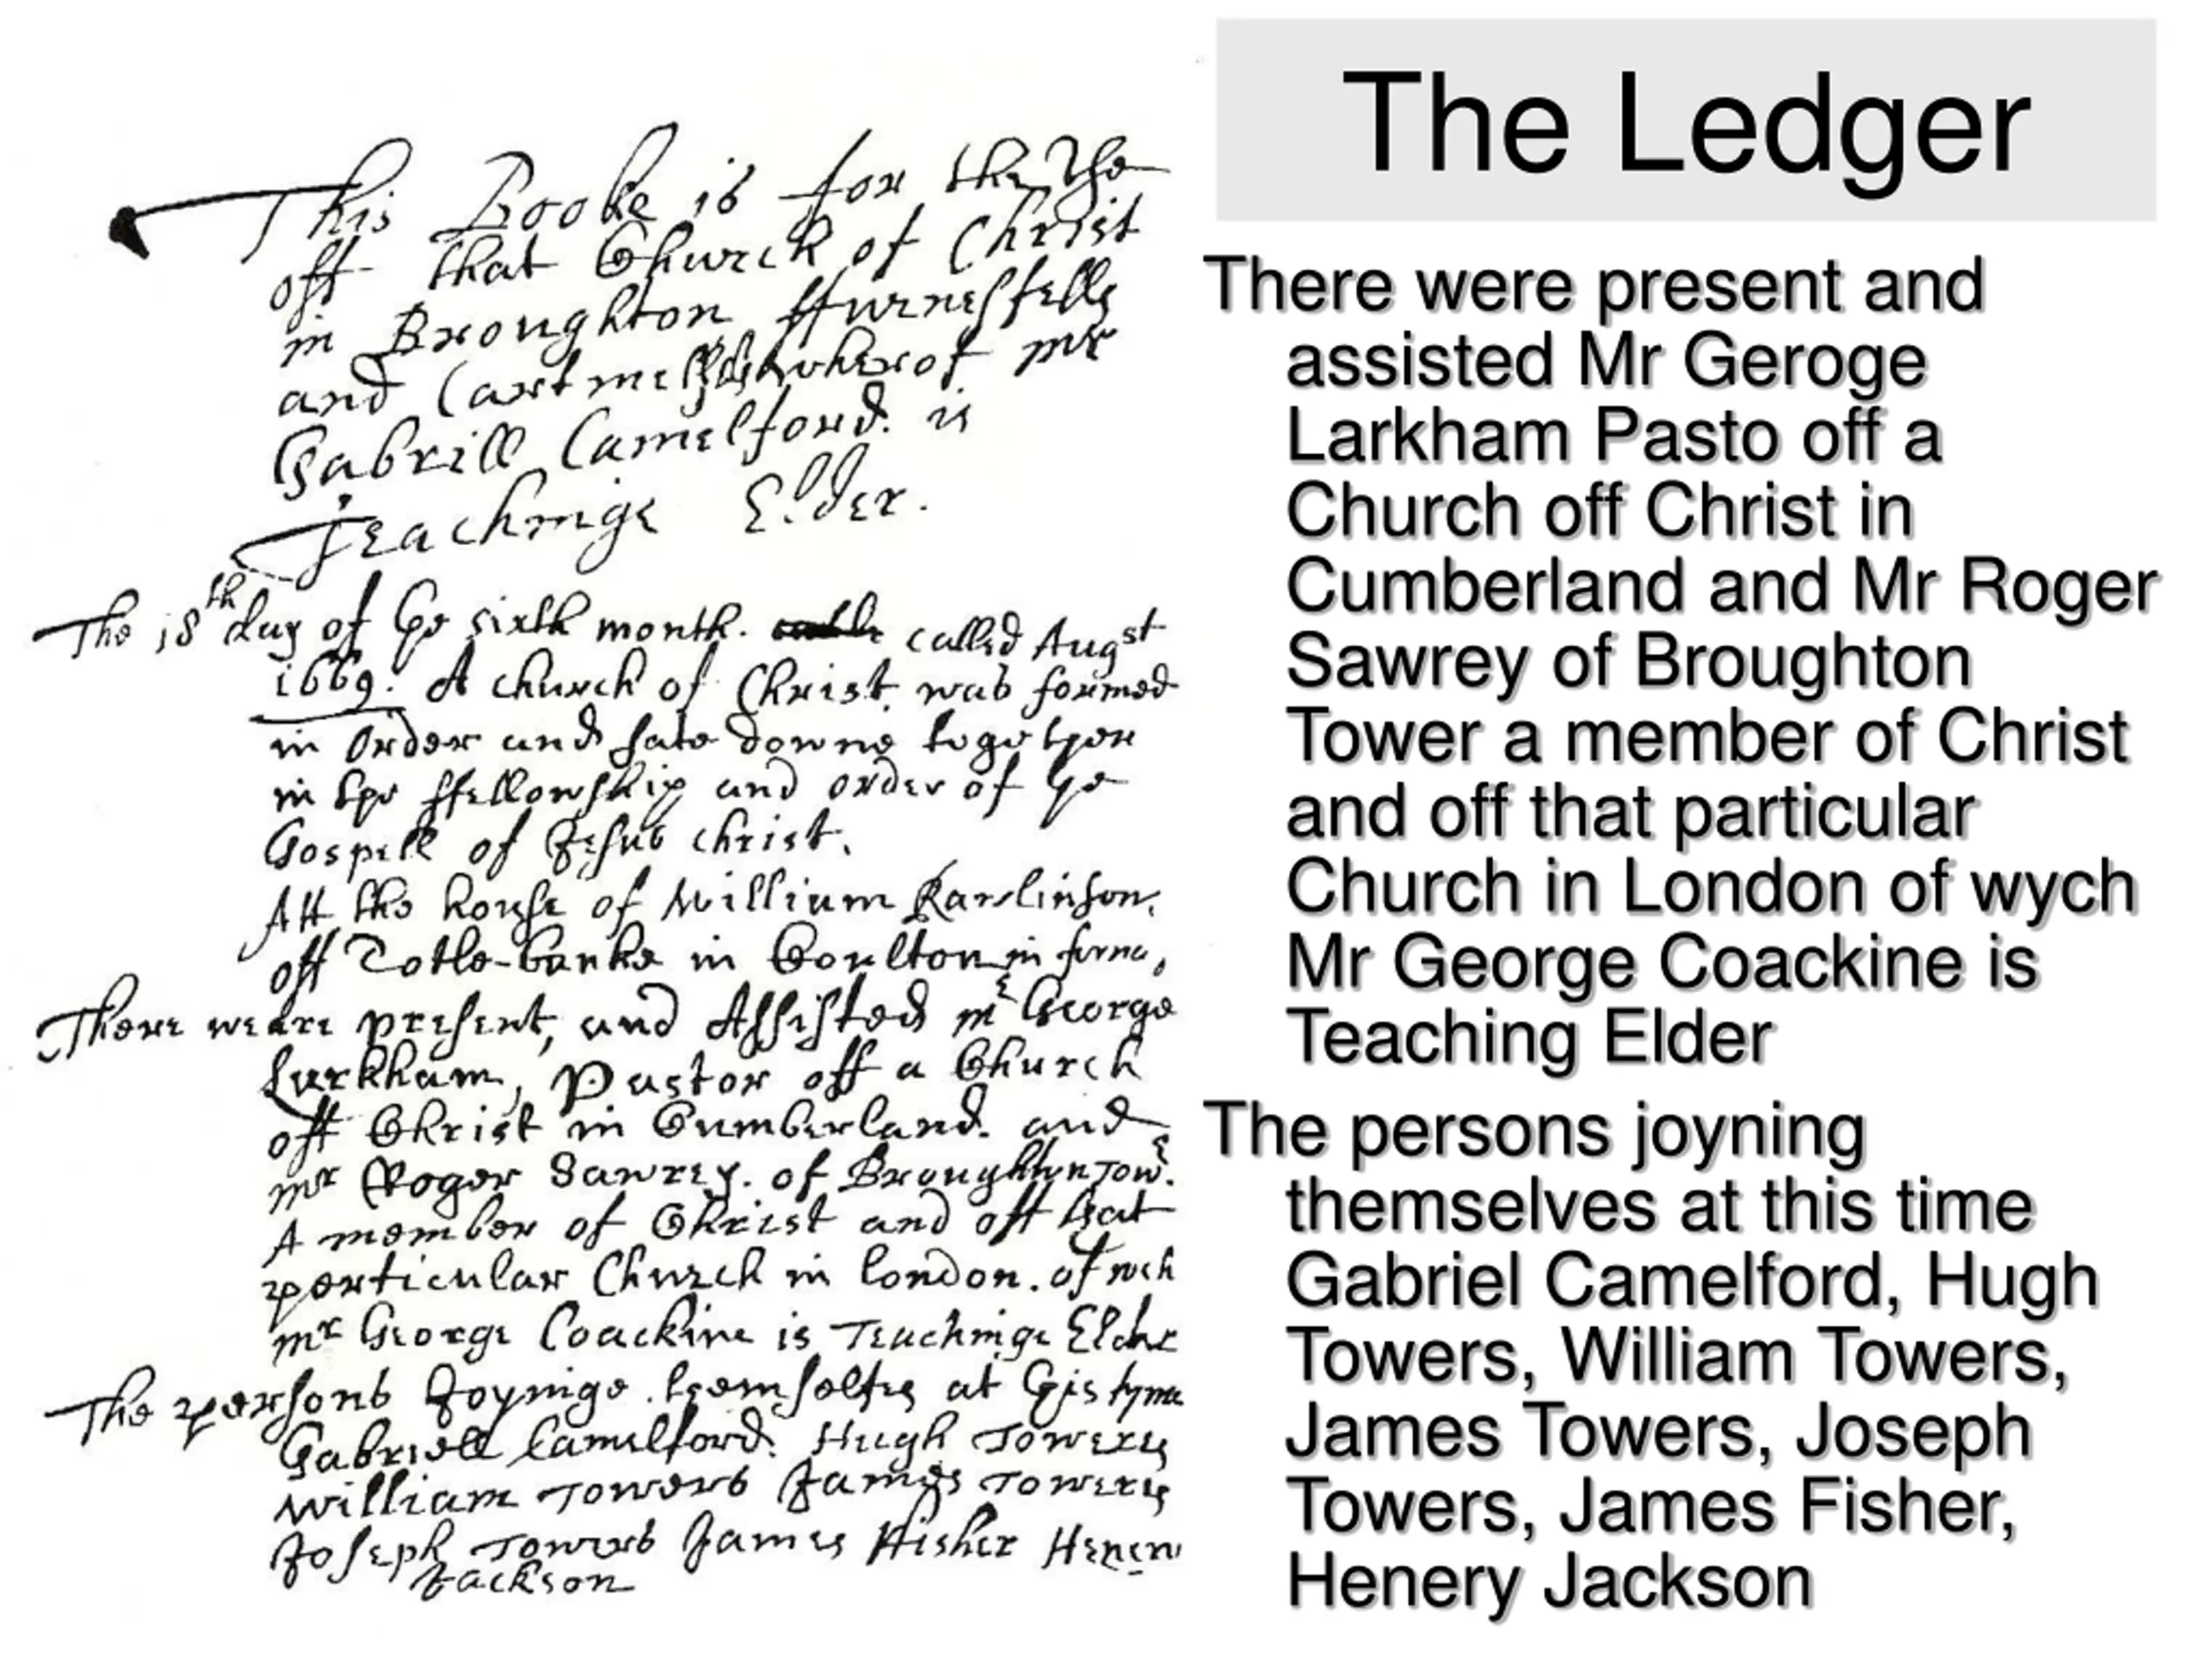 This Booke is for the Use
off that Church of Christ
in Broughton ffurnesfells
and Cartmell wherof mr
Gabriell Camelford. is
Teachinge Elder.
The 18th day of ye sixth month. called Augst
1669. A church of Christ was formed
in order and sate downe together
in the ffellowship and order of ye
Gospell of Jesus christ.
Att the house of William Rawlinson.
off Totle-banke in Coulton in furna,
There weare present, and Assisted mr George
Larkham, Pastor off a Church
off Christ in Cumberland. and
mr Roger Sawrey. of Broughton Towr.
A member of Christ and off that
perticular Church in london. of wch
mr George Coackine is Teachinge Elder
The persons Joyninge themselves at this tyme
Gabriell Camelford. Hugh Towers
William Towers James Towers
Joseph Towers James ffisher Henery
Jackson
The Ledger
There were present and
assisted Mr Geroge
Larkham Pasto off a
Church off Christ in
Cumberland and Mr Roger
Sawrey of Broughton
Tower a member of Christ
and off that particular
Church in London of wych
Mr George Coackine is
Teaching Elder
The persons joyning
themselves at this time
Gabriel Camelford, Hugh
Towers, William Towers,
James Towers, Joseph
Towers, James Fisher,
Henery Jackson